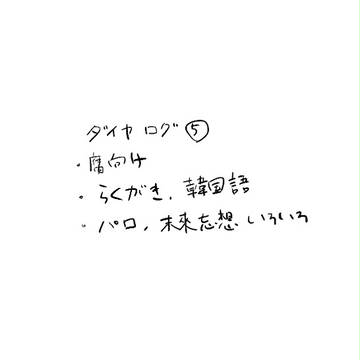 ダイヤログ⑤
・腐向け
・らくがき、韓国語
・パロ、未来忘想 いろいろ